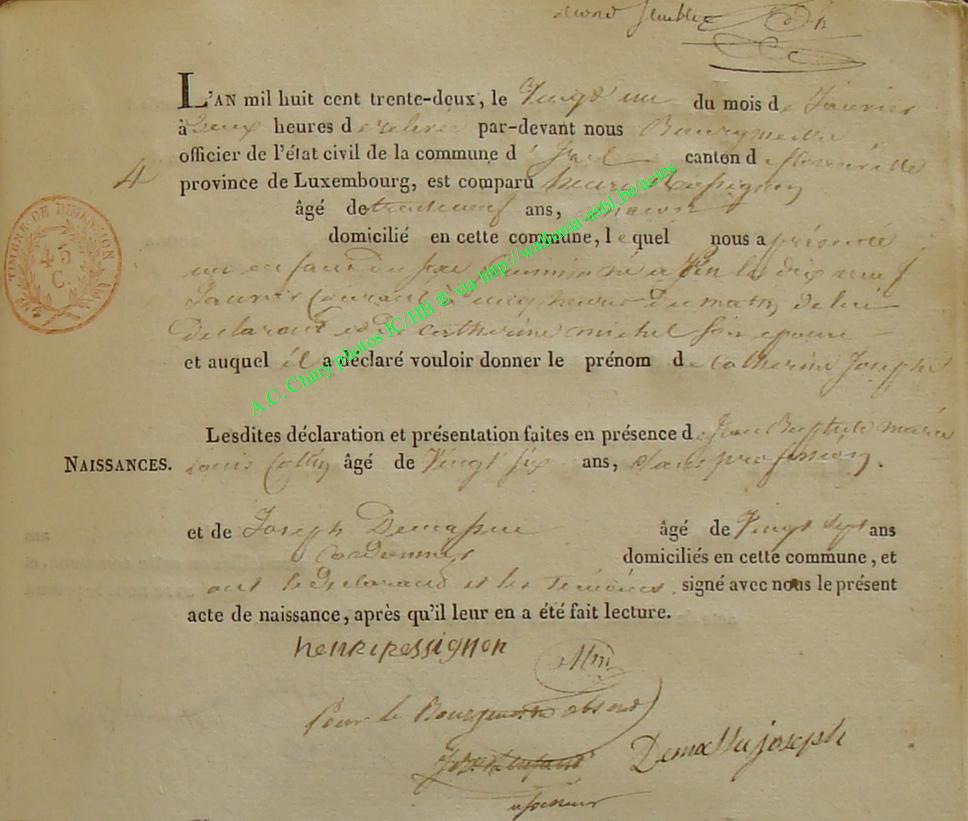 L'AN mil huit cent trente-deux, le Vingt un du mois de Janvier
à Deux heures de relevée par-devant nous Bourgmestre
officier de l'état civil de la commune d canton de florenville
4
province de Luxembourg, est comparu henri
âgé de trente neuf ans,
domicilié en cette commune, lequel nous a présenté
un enfant du sexe feminin né a le dix neuf
Janvier Courant à cinq heures du matin de lui
Declarant et de Catherine michel son epouse
et auquel il a déclaré vouloir donner le prénom de Catherine Joseph
Lesdites déclaration et présentation faites en présence de Jean Baptiste marie
NAISSANCES. Louis Collin âgé de Vingt six ans, sans profession.
et de Joseph âgé de Vingt sept ans
Cordonnier domiciliés en cette commune, et
ont le Declarant et les temoins signé avec nous le présent
acte de naissance, après qu'il leur en a été fait lecture.
henri pessignon
Pour le Bourgmestre absent
joseph
TIMBRE DE DIMENSION
45
C.
A.C. Chiny photos JC/HB © via-http://wallonia-asbl.be/actes